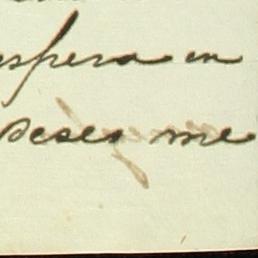 espera en
deses me